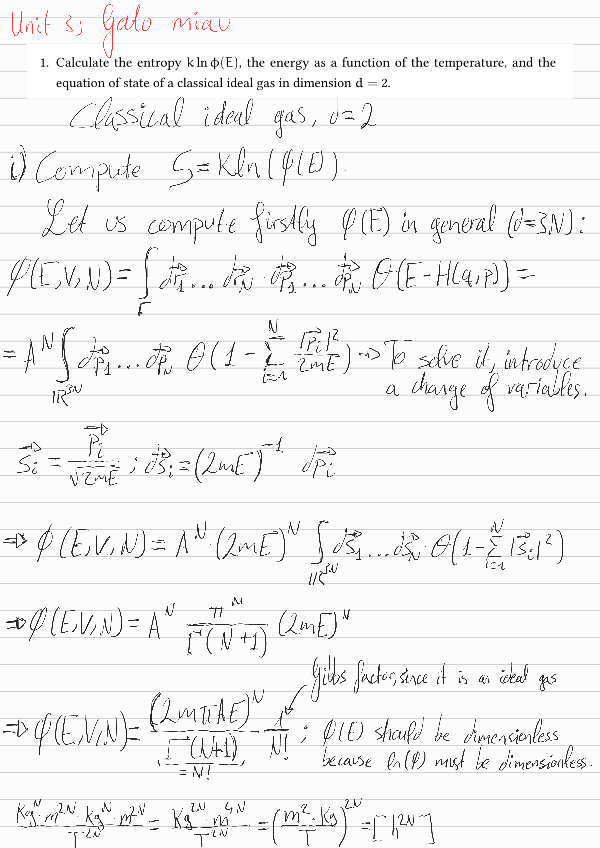 Unit 3; Gato miau
1. Calculate the entropy k ln ϕ(E), the energy as a function of the temperature, and the
equation of state of a classical ideal gas in dimension d = 2.
Classical ideal gas, d=2
i) Compute S=Kln(φ(E)).
Let us compute firstly φ(E) in general (d=3,N):
φ(E,V,N) = ∫_Γ d\vec{p}_1 ... d\vec{p}_N · d\vec{p}_1 ... d\vec{p}_N Θ(E-H(q,p)) =
= A^N ∫_{ℝ^{3N}} d\vec{p}_1 ... d\vec{p}_N Θ(1 - Σ_{i=1}^{N} |\vec{p}_i|²/2mE) → To solve it, introduce
a change of variables.
\vec{s}_i = \vec{p}_i/√2mE ; d\vec{s}_i = (2mE)^{-1} d\vec{p}_i
⇒ φ(E,V,N) = A^N · (2mE)^N ∫_{ℝ^{3N}} d\vec{s}_1 ... d\vec{s}_N · Θ(1 - Σ_{i=1}^{N} |\vec{s}_i|²)
⇒ φ(E,V,N) = A^N π^N/Γ(N+1) (2mE)^N
Gibbs factor, since it is an ideal gas
⇒ φ(E,V,N) = (2mπAE)^N/Γ(N+1) · 1/N! ; φ(E) should be dimensionless
=N! because ln(φ) must be dimensionless.
Kg^N·m^{2N}·kg^N·m^{2N}/T^{2N} = Kg^{2N}·m^{4N}/T^{2N} = (m²·Kg/T)^{2N} = [h^{2N}]